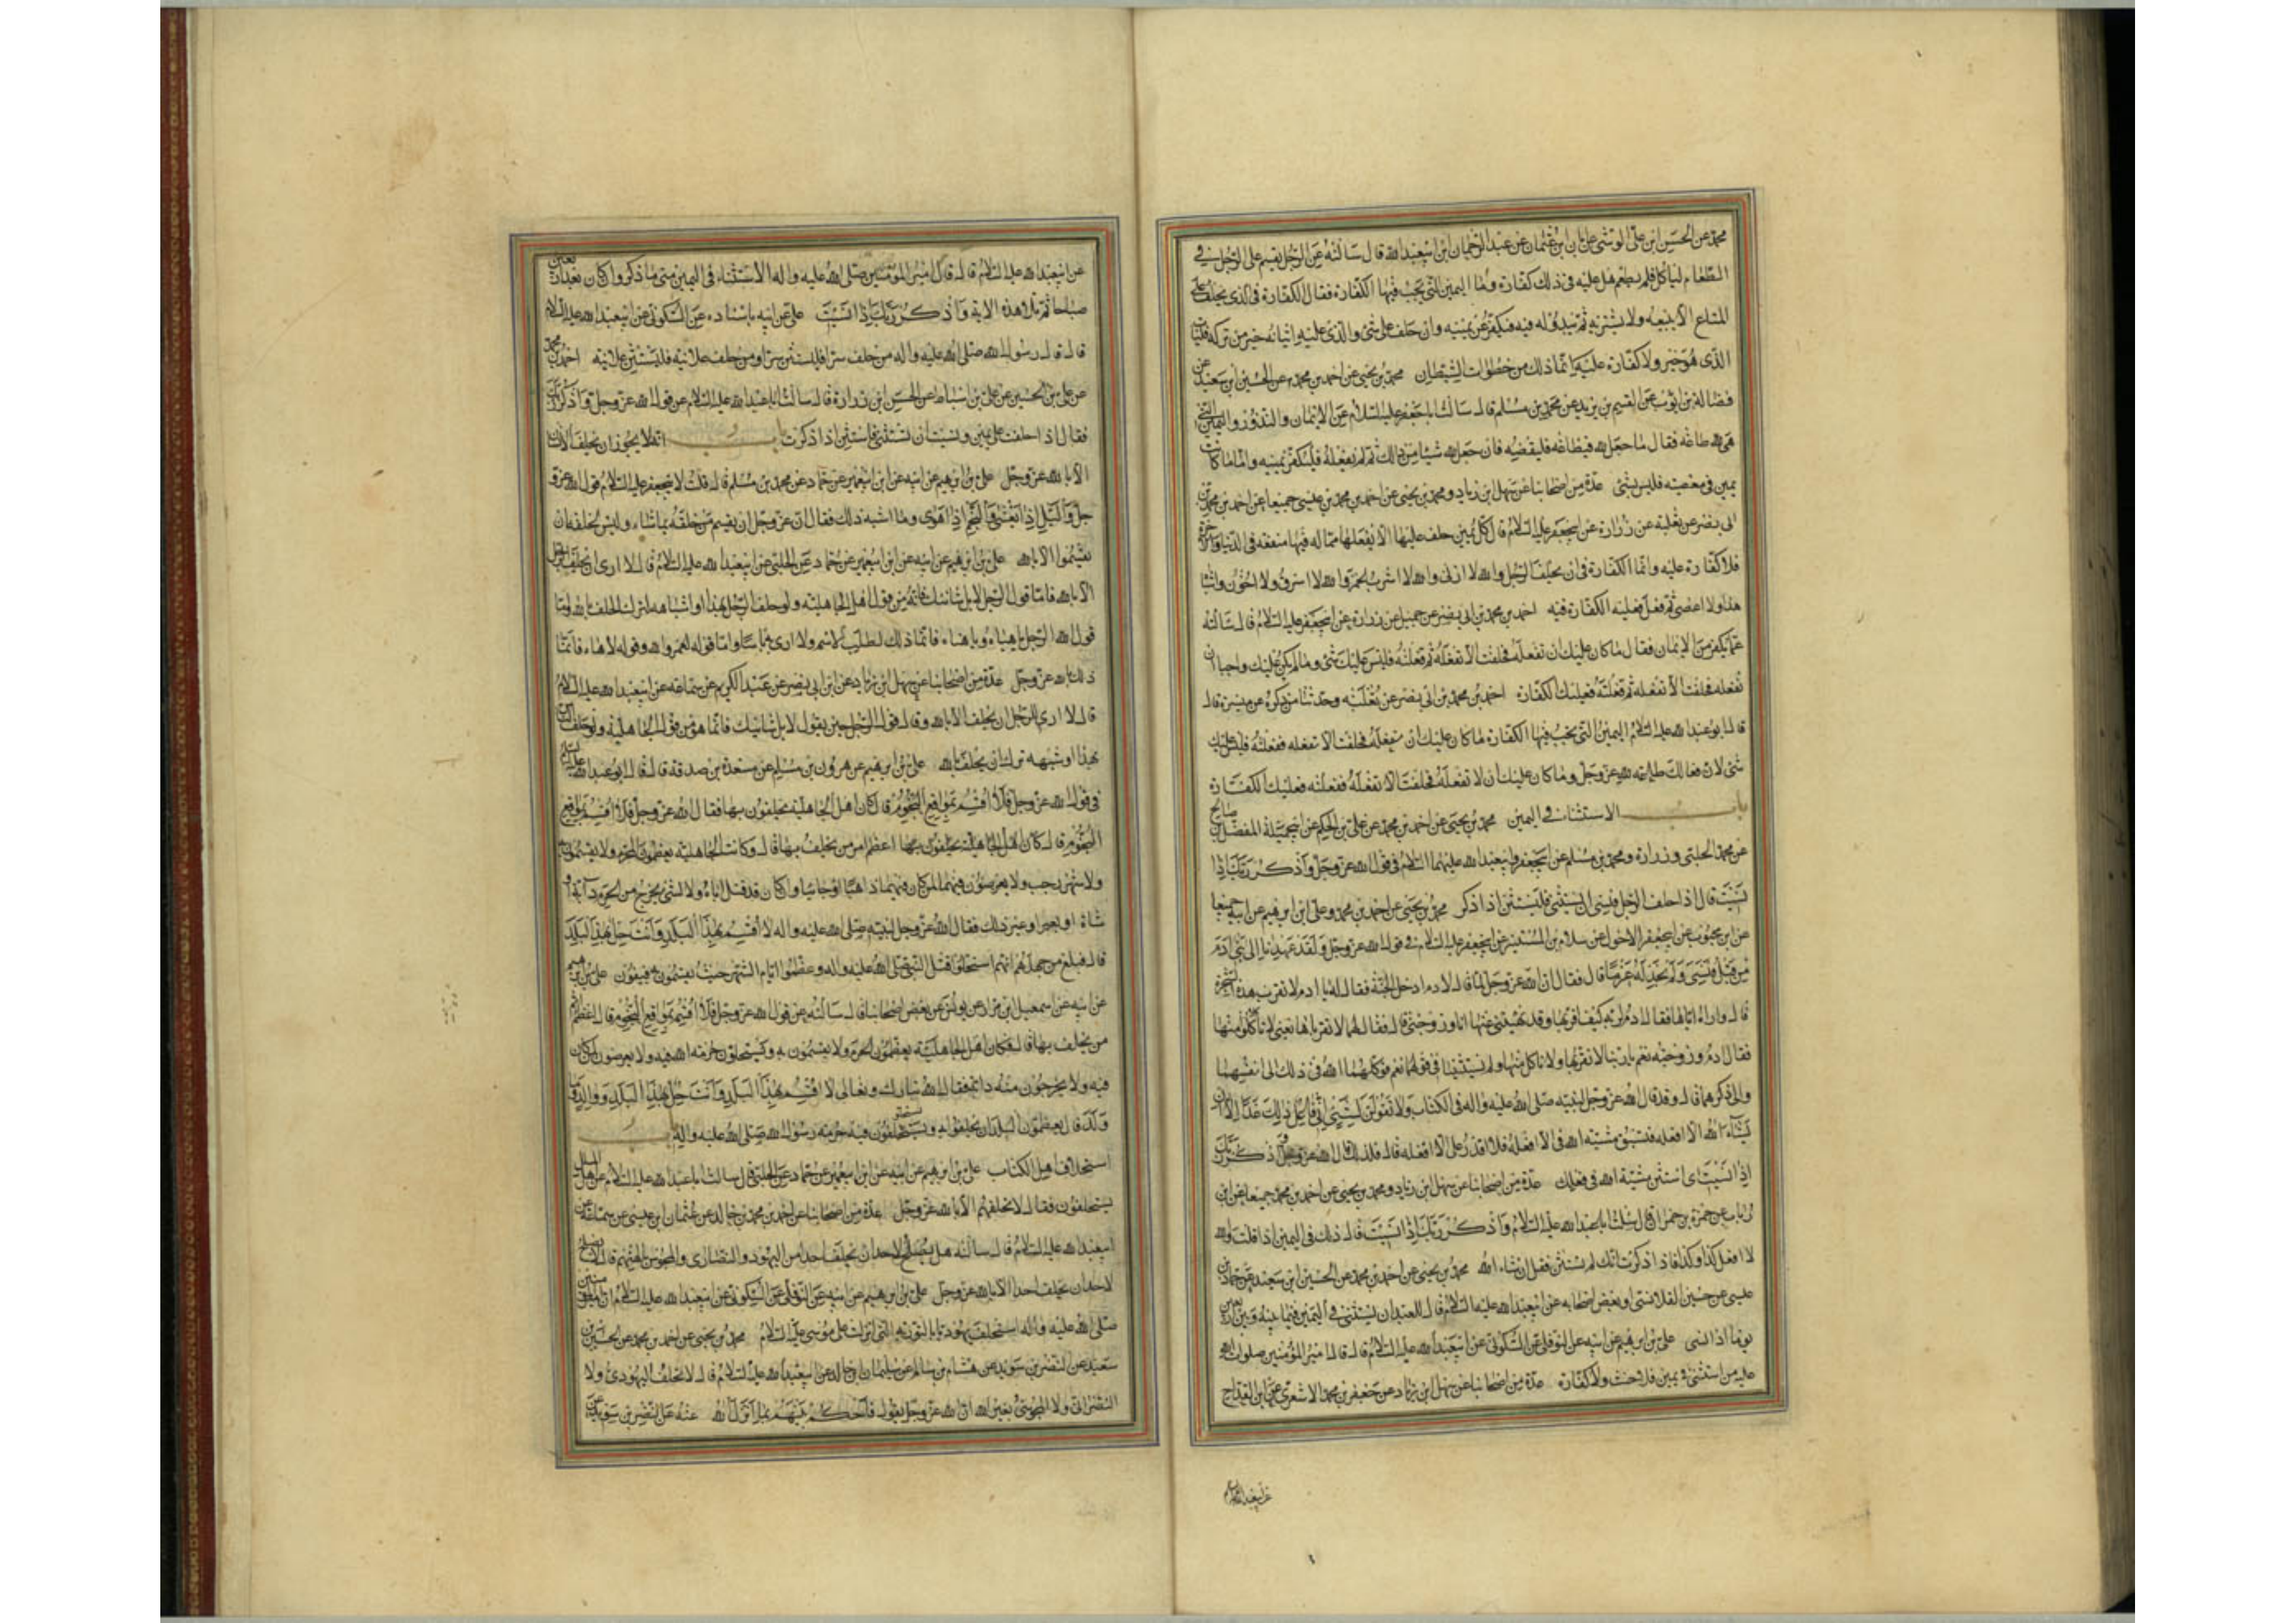 محمد عن الحسن ابن علي الوشي عن ابان ابن عثمان عن عبد الرحمان ابن ابيعبد الله قال سالته عن الرجل يقسم على الرجل في
الطعام لياكل فلم يطعم هل عليه في ذلك كفارة وما اليمين التي تجب فيها الكفارة فقال الكفارة في الذي يحلف على
المتاع الا يبيعه ولا يشتريه ثم يبدو له فيه فيكفر عن يمينه وان حلف على شئ والذي عليه اتيانه خير من تركه فليات
الذي هو خير ولا كفارة عليه وانما ذلك من خطوات الشيطان محمد بن يحيى عن احمد بن محمد عن الحسين ابن سعيد عن
فضالة بن ايوب عن القسم بن بريد عن محمد بن مسلم قال سالت ابا جعفر عليه السلام عن الايمان والنذور واليمين التي
هي لله طاعة فقال ما جعل لله في طاعة فليقضه فان جعل لله شيئا من ذلك ثم لم يفعله فليكفر يمينه واما ما كانت
يمين في معصية فليس بشئ عدة من اصحابنا عن سهل ابن زياد ومحمد بن يحيى عن احمد بن محمد بن عيسى جميعا عن احمد بن محمد بن
ابي بصر عن ثعلبة عن زرارة عن ابيجعفر عليه السلام قال كل يمين حلف عليها الا يفعلها مما له فيها منفعة في الدنيا والاخرة
فلا كفارة عليه وانما الكفارة في ان يحلف الرجل والله لا ازني والله لا اشرب الخمر والله لا اسرق ولا اخون واشباه
هذا ولا اعصي ثم فعل فعليه الكفارة فيه احمد بن محمد بن ابي بصر عن جميل عن زرارة عن ابيجعفر عليه السلام قال سالته
عما يكفر من الايمان فقال ما كان عليك ان تفعله فحلفت الا تفعله ثم فعلته فليس عليك شئ وما لم يكن عليك واجبا ان
تفعله فحلفت الا تفعله ثم فعلته فعليك الكفارة احمد بن محمد بن ابي بصر عن ثعلبة وحدثنا من ذكره عن ميسرة قال
قال ابو عبد الله عليه السلام اليمين التي تجب فيها الكفارة ما كان عليك ان تفعله فحلفت الا تفعله ففعلته فليس عليك
شئ لان فعالك طاعة لله عز وجل وما كان عليك ان لا تفعله فحلفت الا تفعله ففعلته فعليك الكفارة
باب الاستثناء في اليمين محمد بن يحيى عن احمد بن محمد عن علي بن الحكم عن ابيجميلة المفضل بن صالح
عن محمد الحلبي وزرارة ومحمد بن مسلم عن ابيجعفر وابيعبد الله عليهما السلام في قول الله عز وجل واذكر ربك اذا
نسيت قال اذا حلف الرجل فنسي ان يستثني فليستثن اذا ذكر محمد بن يحيى عن احمد بن محمد وعلي ابن ابرهيم عن ابيه جميعا
عن ابن محبوب عن ابيجعفر الاحول عن سلام بن المستنير عن ابيجعفر عليه السلام في قول الله عز وجل ولقد عهدنا الى بني ادم
من قبل فنسي ولم نجد له عزما قال فقال ان الله عز وجل لما قال لادم ادخل الجنة فقال له يا ادم لا تقرب هذه الشجرة
قال واراه اياها فقال ادم لربه كيف اقربها وقد نهيتني عنها انا وزوجتي قال فقال لهما لا تقرباها يعني لا تاكلا منها
فقال ادم وزوجته نعم يا ربنا لا نقربها ولا ناكل منها ولم يستثنيا في قولهما نعم فوكلهما الله في ذلك الى انفسهما
والى ذكرهما قال وقد قال الله عز وجل لنبيه صلى الله عليه واله في الكتاب ولا تقولن لشيئ اني فاعل ذلك غدا الا ان
يشاء الله الا افعله فتسبق مشية الله في الا افعله فلا اقدر على الا افعله قال فلذلك قال الله عز وجل واذكر ربك
اذا نسيت اى استثن مشية الله في فعلك عدة من اصحابنا عن سهل ابن زياد ومحمد بن يحيى عن احمد بن محمد جميعا عن ابن
رئاب عن حمزة بن حمران قال سئلت ابا عبد الله عليه السلام واذكر ربك اذا نسيت قال ذلك في اليمين اذا قلت والله
لا افعل كذا وكذا فاذا ذكرت انك لم تستثن فقل ان شاء الله محمد بن يحيى عن احمد بن محمد عن الحسين ابن سعيد عن حماد بن
عيسى عن حسين القلانسي او بعض اصحابه عن ابيعبد الله عليه السلام قال للعبد ان يستثني في اليمين فيما بينه وبين اربعين
يوما اذا نسي علي بن ابرهيم عن ابيه عن النوفلي عن السكوني عن ابيعبد الله عليه السلام قال قال امير المؤمنين صلوات الله
عليه من استثنى في يمين فلا حنث ولا كفارة عدة من اصحابنا عن سهل ابن زياد عن جعفر بن محمد الاشعري عن ابن القداح
عن ابيعبد الله
عن ابيعبد الله عليه السلام قال قال امير المؤمنين صلى الله عليه واله الاستثناء في اليمين متى ما ذكر وان كان بعد اربعين
صباحا ثم تلا هذه الاية واذكر ربك اذا نسيت علي عن ابيه باسناده عن السكوني عن ابيعبد الله عليه السلام
قال قال رسول الله صلى الله عليه واله من حلف سرا فليستثن سرا ومن حلف علانية فليستثن علانية احمد بن محمد
عن علي بن الحسين عن علي بن اسباط عن الحسن ابن زرارة قال سالت ابا عبد الله عليه السلام عن قول الله عز وجل واذكر ربك
فقال اذا حلفت على يمين ونسيت ان تستثني فاستثن اذا ذكرت باب انه لا يجوز ان يحلف الانسان
الا بالله عز وجل علي بن ابرهيم عن ابيه عن ابن ابيعمير عن حماد عن محمد بن مسلم قال قلت لابيجعفر عليه السلام قول الله عز و
جل والليل اذا يغشى والنجم اذا هوى وما اشبه ذلك فقال ان عز وجل ان يقسم من خلقه بما شاء وليس لخلقه ان
يقسموا الا بالله علي بن ابرهيم عن ابيه عن ابن ابيعمير عن حماد عن الحلبي عن ابيعبد الله عليه السلام قال لا ارى ان يحلف الرجل
الا بالله فاما قول الرجل لابل شانئك فانه من قول اهل الجاهلية ولو حلف الرجل بهذا او اشباهه لترك الحلف بالله واما
قول الله الرجل يا هناه ويا هناه فانما ذلك لطلب الاسم ولا ارى به باسا واما قوله لعمر والله وقوله لاهاه فانما
ذلك بالله عز وجل عدة من اصحابنا عن سهل ابن زياد عن ابن ابي بصر عن عبد الكريم عن سماعة عن ابيعبد الله عليه السلام
قال لا ارى للرجل ان يحلف الا بالله وقال قول الرجل حين يقول لابل شانيك فانما هو من قول الجاهلية ولو حلف الناس
بهذا او شبهه ترك ان يحلف بالله علي بن ابرهيم عن هرون بن مسلم عن مسعدة بن صدقة قال قال ابو عبد الله عليه السلام
في قول الله عز وجل فلا اقسم بمواقع النجوم قال كان اهل الجاهلية يحلفون بها فقال الله عز وجل فلا اقسم بمواقع
النجوم قال كان اهل الجاهلية يحلفون بها اعظم امر من يحلف بها قال وكانت الجاهلية يعظمون المحرم ولا يقسمون به
ولا شهر رجب ولا يعرضون فيهما لمن كان فيهما ذاهبا او جائيا وان كان قد قتل اباه ولا لشئ يخرج من الحرم دابة او
شاة او بعير او غير ذلك فقال الله عز وجل لنبيه صلى الله عليه واله لا اقسم بهذا البلد وانت حل بهذا البلد
قال فبلغ من جهلهم انهم استحلوا قتل النبي صلى الله عليه واله وعظموا ايام الشهر حيث يقسمون به فيفون علي بن ابرهيم
عن ابيه عن اسمعيل ابن مرار عن يونس عن بعض اصحابنا قال سالته عن قول الله عز وجل فلا اقسم بمواقع النجوم قال اعظم اثم
من يحلف بها قال فكان اهل الجاهلية يعظمون الحرم ولا يقسمون به ويستحلون حرمة الله فيه ولا يعرضون لمن كان
فيه ولا يخرجون منه دابة فقال الله تبارك وتعالى لا اقسم بهذا البلد وانت حل بهذا البلد ووالد وما
ولد قال يعظمون البلد ان يحلفوا به ويستحلون فيه حرمة رسول الله صلى الله عليه واله باب
استحلاف اهل الكتاب علي بن ابرهيم عن ابيه عن ابن ابيعمير عن حماد عن الحلبي قال سالت ابا عبد الله عليه السلام عن اهل الملل
يستحلفون فقال لا تحلفوهم الا بالله عز وجل عدة من اصحابنا عن احمد بن محمد بن خالد عن عثمان ابن عيسى عن سماعة عن
ابيعبد الله عليه السلام قال سالته هل يصلح لاحد ان يحلف احدا من اليهود والنصارى والمجوس بالهتهم قال لا يصلح
لاحد ان يحلف احدا الا بالله عز وجل علي بن ابرهيم عن ابيه عن النوفلي عن السكوني عن ابيعبد الله عليه السلام ان امير المؤمنين
صلى الله عليه واله استحلف يهوديا بالتورية التي انزلت على موسى عليه السلام محمد بن يحيى عن احمد بن محمد عن الحسين بن
سعيد عن النضر بن سويد عن هشام بن سالم عن سليمان ابن خالد عن ابيعبد الله عليه السلام قال لا تحلف اليهودي ولا
النصراني ولا المجوسي بغير الله ان الله عز وجل يقول فاحكم بينهم بما انزل الله عنه عن النضر بن سويد عن